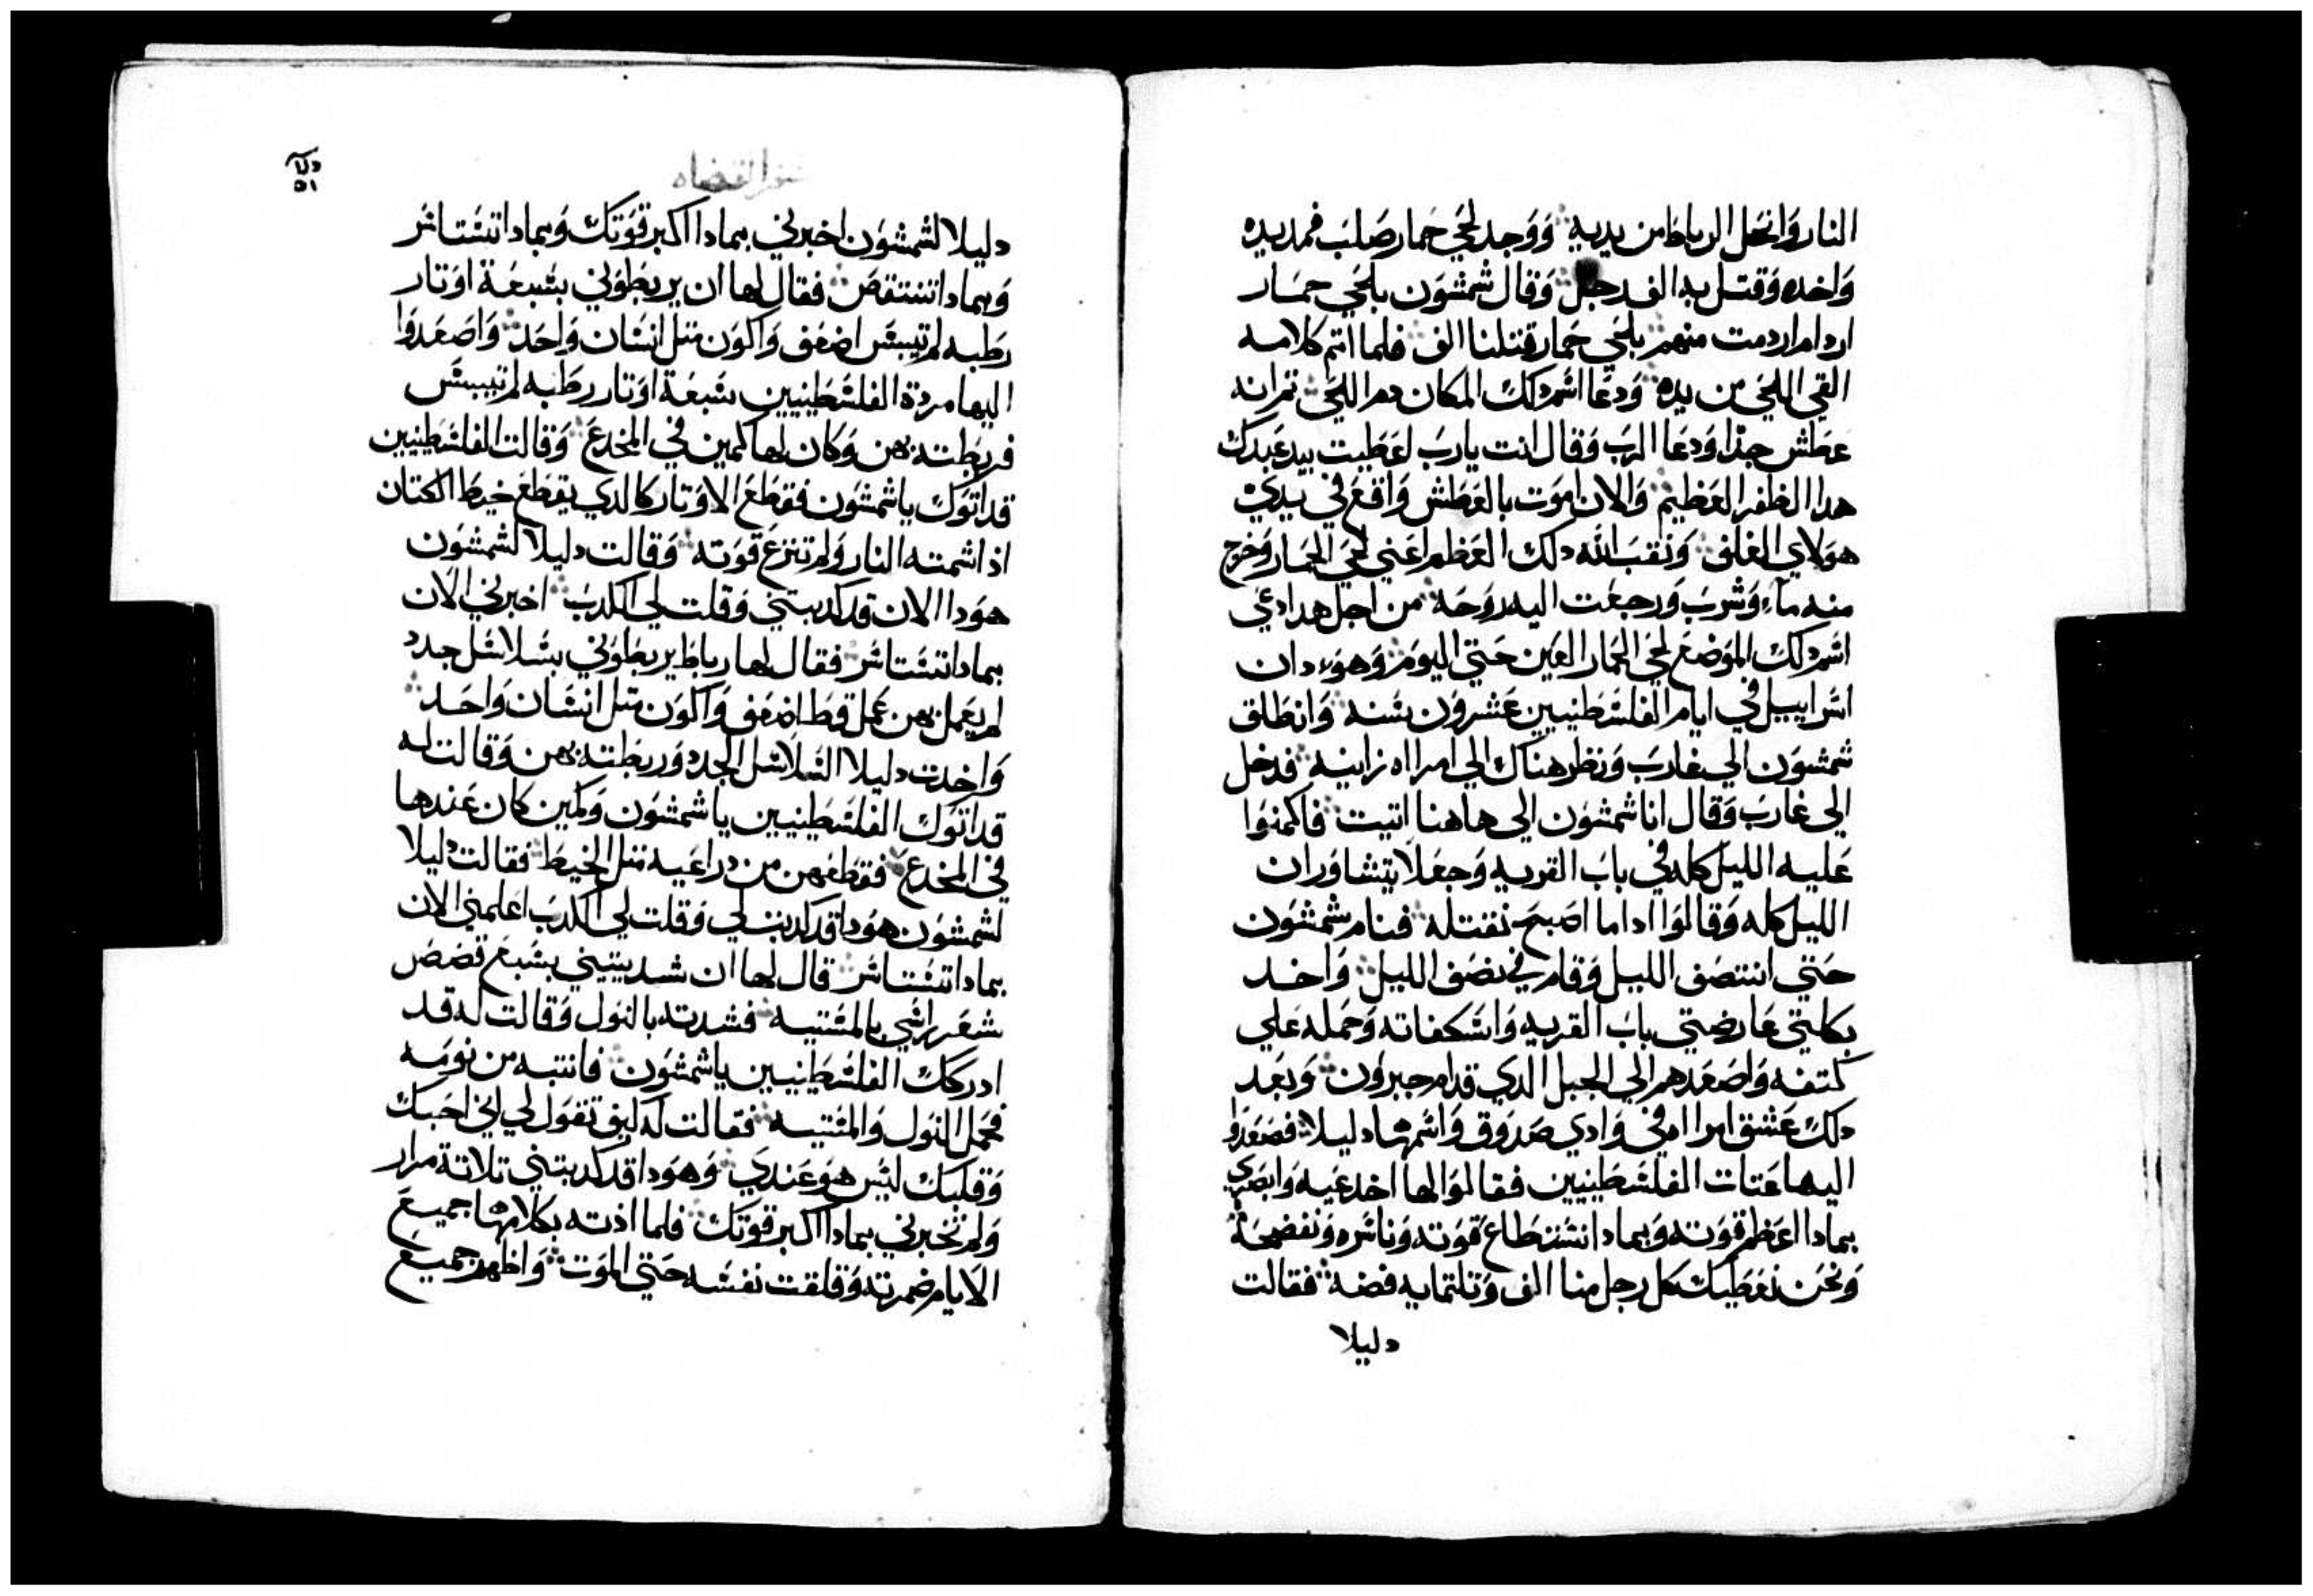 النار وانحل الرباط من يديه ووجد لحي حمار صلب فمد يده
واخده وقتل به الف رجل وقال شمشون بلحي حمار
اردام اردمت منهم بلحي حمار قتلنا الف فلما اتم كلامه
القي اللحي من يده ودعا اسم دلك المكان دم اللحي تم انه
عطش جدا ودعا الرب وقال انت يارب اعطيت بيد عبدك
هدا الظفر العظيم والان اموت بالعطش واقع في يدي
هولاي الغلف ونقب الله دلك العظم اعني لحي الحمار وخرج
منه ماء وشرب ورجعت اليه روحه من اجل هدا دعي
اسم دلك الموضع لحي الحمار العين حتي اليوم وهو دان
اسراييل في ايام الفلسطنيين عشرون سنه وانطلق
شمشون الي غارب ونظر هناك الي امراه زانيه فدخل
الي غارب وقال انا شمشون الي هاهنا اتيت فاكمنوا
عليه الليل كله في باب القريه وجعلا يتشاوران
الليل كله وقالوا ادا ما اصبح نقتله فنام شمشون
حتي انتصف الليل وقام في نصف الليل واخد
بكلتي عارضتي باب القريه واسكفاته وحمله علي
كتفه واصعدهم الي الجبل الدي قدام حبرون وبعد
دلك عشق امراه في وادي صدوق واسمها دليلا فصعدوا
اليها عتات الفلسطنيين فقالوا لها اخدعيه وابصري
بمادا اعظم قوته وبمادا نستطاع قوته وناسره ونفضحه
ونحن نعطيك كل رجل منا الف وتلتمايه فضه فقالت
دليلا
سفر القضاه
دليلا لشمشون اخبرني بمادا اكبر قوتك وبمادا تستاسر
وبمادا تنتقص فقال لها ان يربطوني بسبعة اوتار
رطبه لم تيبس اضعف واكون متل انسان واحد واصعدوا
اليها مردة الفلسطنيين سبعة اوتار رطبه لم تيبس
فربطته بهن وكان لها كمين في المخدع وقالت الفلسطنيين
قد اتوك ياشمشون فقطع الاوتار كالدي يقطع خيط الكتان
اذا شمته النار ولم تنزع قوته وقالت دليلا لشمشون
هودا الان قد كدبتني وقلت لي الكدب اخبرني الان
بمادا تستاسر فقال لها رباط يربطوني بسلاسل جدد
لم يعمل بهن عمل قط اضعف واكون متل انسان واحد
واخدت دليلا السلاسل الجدد وربطته بهن وقالت له
قد اتوك الفلسطنيين ياشمشون وكمين كان عندها
في المخدع فقطعهن من دراعيه متل الخيط فقالت دليلا
لشمشون هودا قد كدبت لي وقلت لي الكدب اعلمني الان
بمادا تستاسر قال لها ان شديتيني بسبع قصص
شعر راسي بالمستيه فشدته بالنول وقالت له قد
ادركك الفلسطنيين ياشمشون فانتبه من نومه
فحمل النول والمستيه فقالت له كيف تقول لي اني احبك
وقلبك ليس هو عندي وهودا قد كدبتني تلاتة مرار
ولم تخبرني بمادا اكبر قوتك فلما اذته بكلامها جميع
الايام ضمرته وقلقت نفسه حتي الموت واظهر جميع